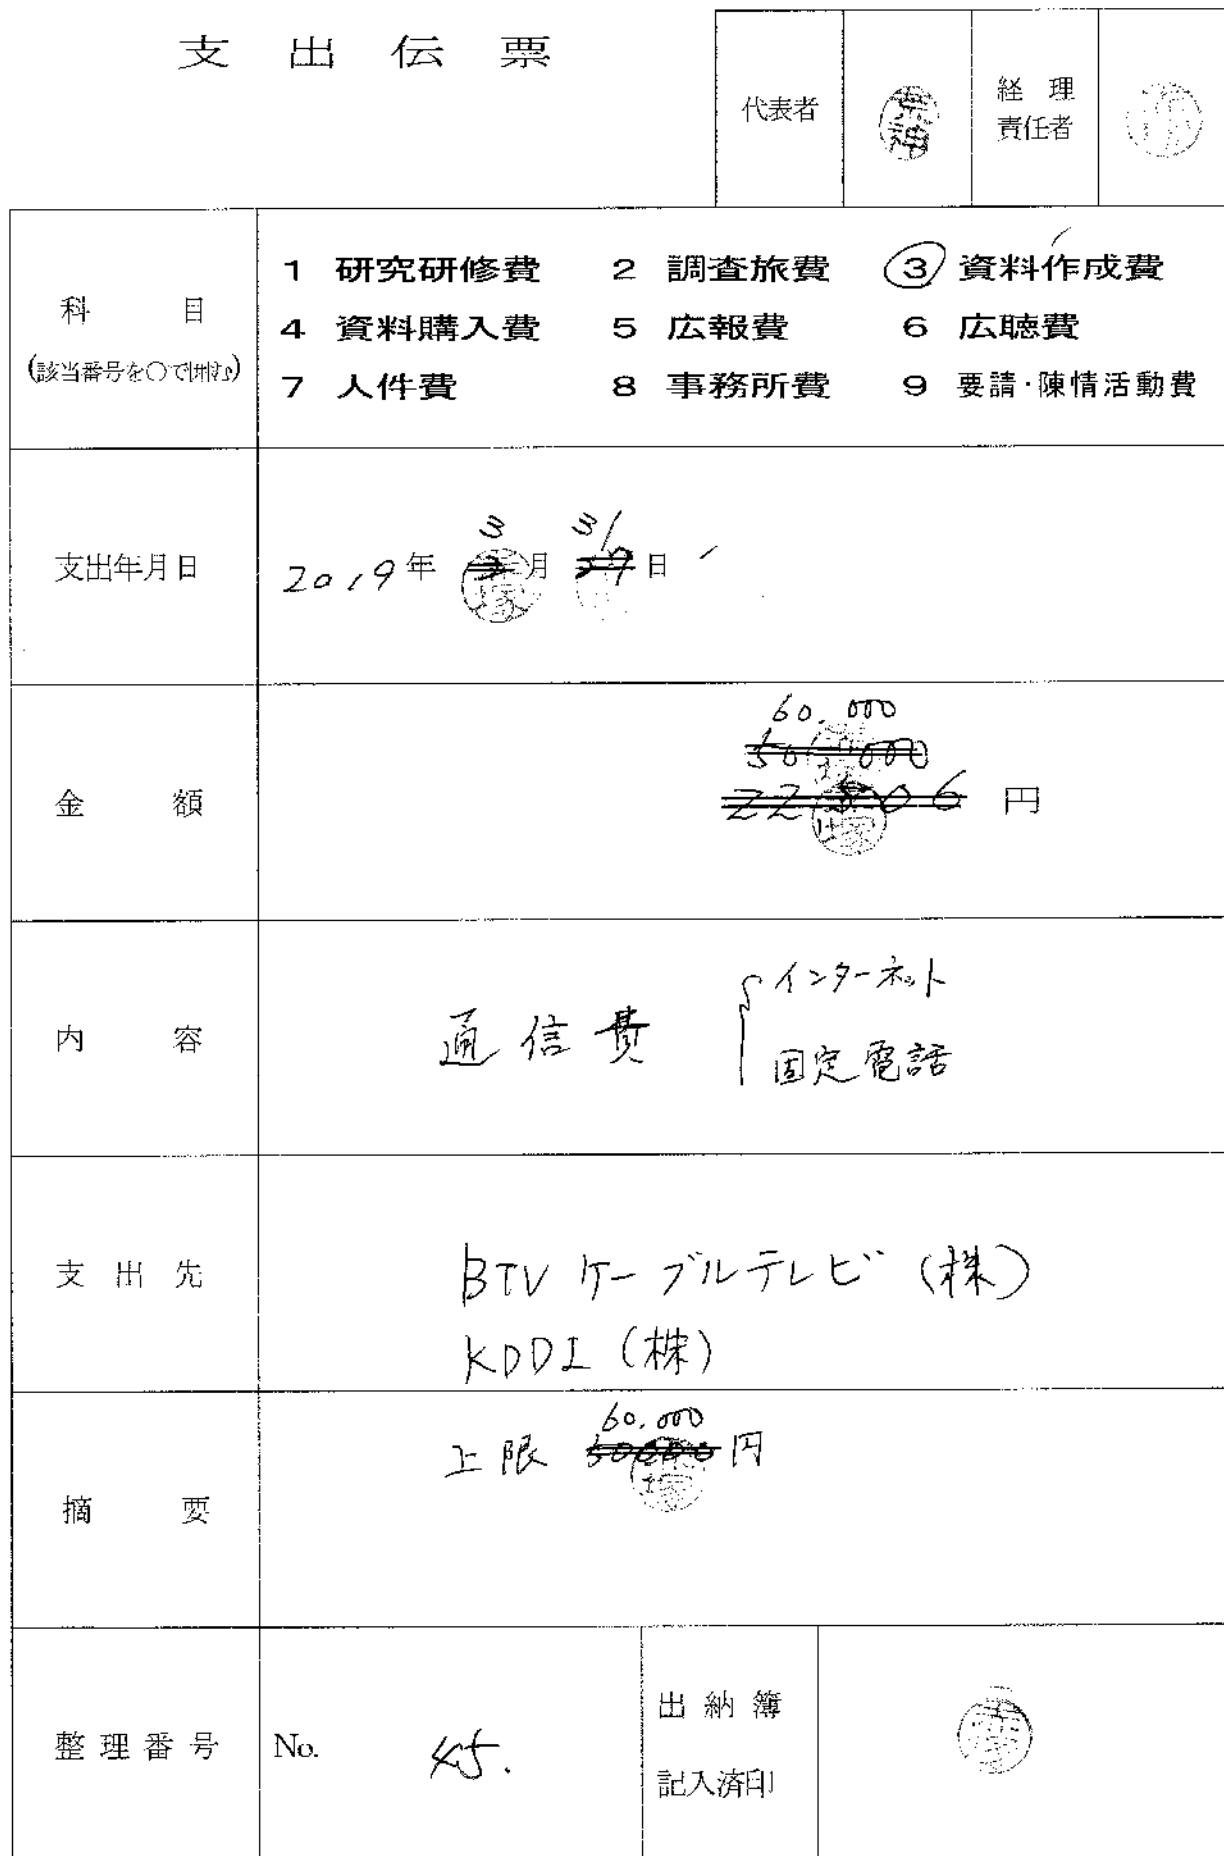 支出伝票
代表者
経理
責任者
科目
(該当番号を○で囲む)
1 研究研修費 2 調査旅費 3 資料作成費
4 資料購入費 5 広報費 6 広聴費
7 人件費 8 事務所費 9 要請・陳情活動費
支出年月日
3 31
2019年 月 日
金額
60,000
円
内容
通信費
インターネット
固定電話
支出先
BTVケーブルテレビ(株)
KDDI(株)
摘要
60,000
上限 50000円
整理番号
No. 45.
出納簿
記入済印